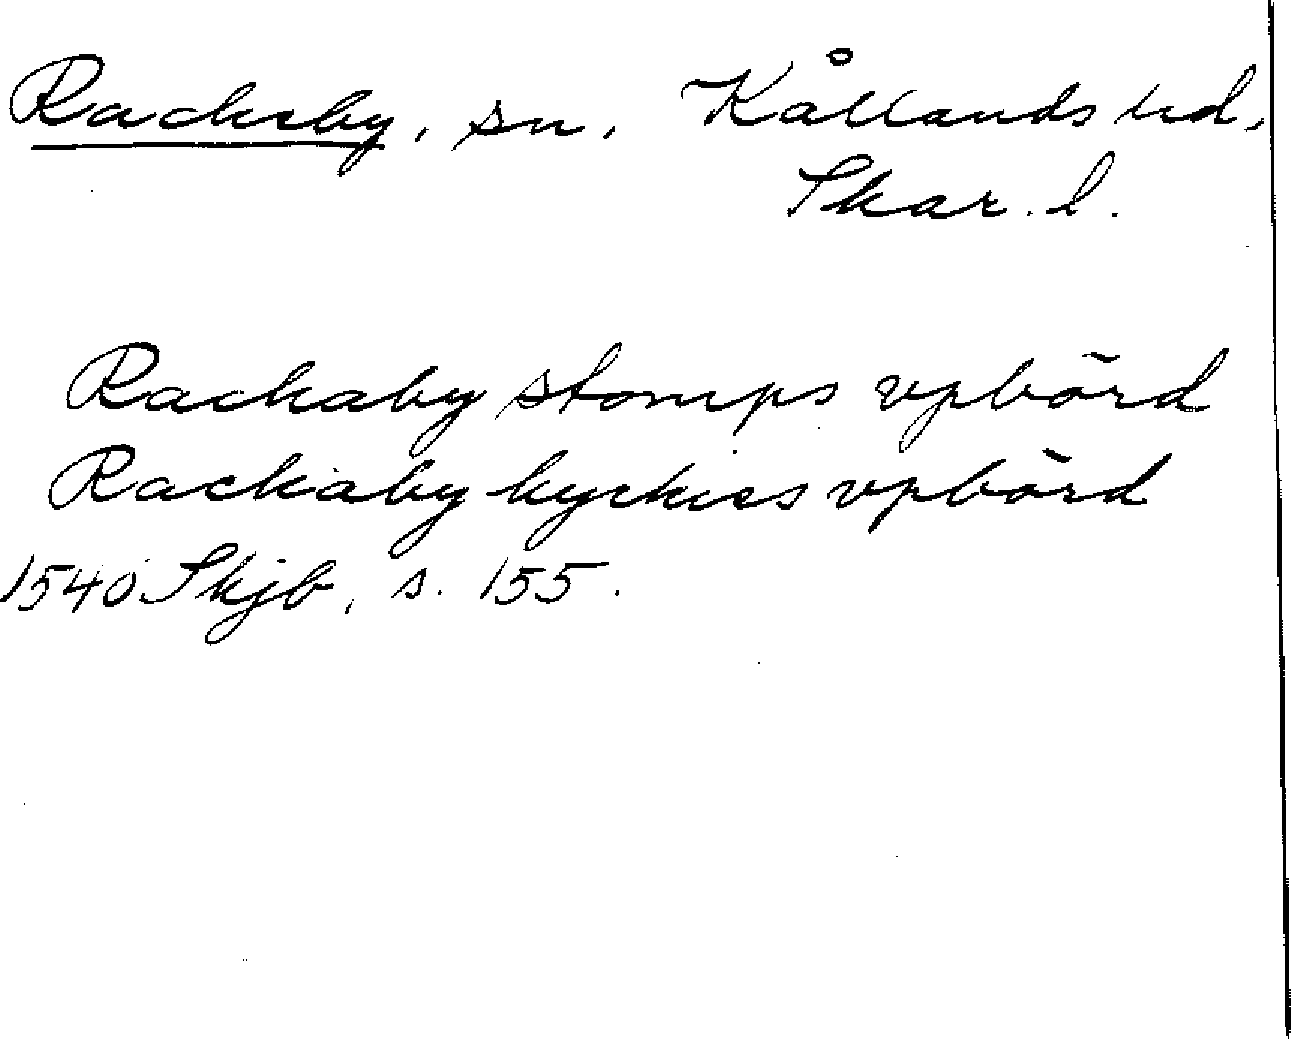 Rackeby, sn. Kållands hd,
Skar. l.
Rackaby stomps vpbörd
Rackaby kyrkiss vpbörd
1540 Skjb, s. 155.